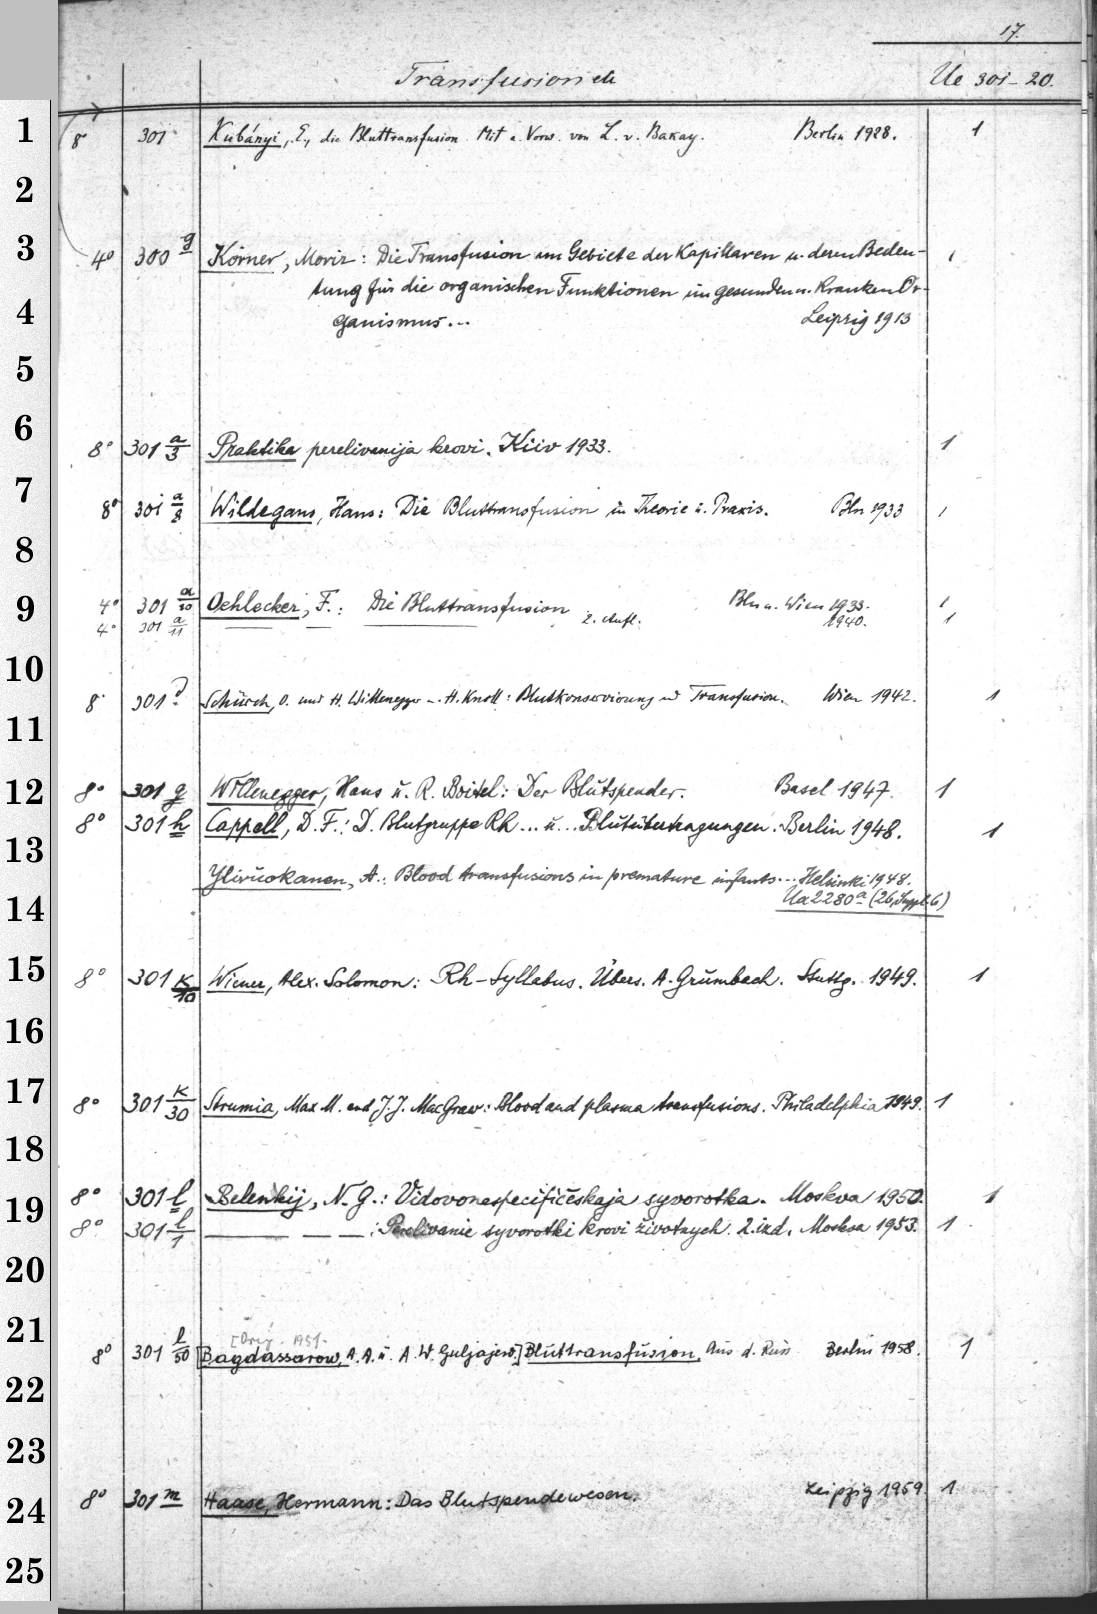 17.
Transfusion etc Ue 301-20.
1 8° 301 Kubányi, E., die Bluttransfusion. Mit e. Vorw. von L. v. Bakay. Berlin 1928. 1
2
3 4° 300 g Körner, Moriz: Die Transfusion im Gebiete der Kapillaren u. deren Bedeu- 1
tung für die organischen Funktionen im gesunden u. kranken Or-
4 ganismus... Leipzig 1913
5
6 8° 301 a/3 Praktika perelivanija krovi. Kiiv 1933. 1
7 8° 301 a/8 Wildegans, Hans: Die Bluttransfusion in Theorie u. Praxis. Bln 1933 1
8
9 4° 301 a/10 Oehlecker, F.: Die Bluttransfusion Bln u. Wien 1933. 1
4° 301 a/11 — — — 2. Aufl. 1940. 1
10
8° 301 Schürch, O. und H. Willenegger u. H. Knoll: Blutkonservierung und Transfusion. Wien 1942. 1
11
12 8° 301 g Willenegger, Hans u. R. Boitel: Der Blutspender. Basel 1947. 1
8° 301 h Cappell, D. F.: D. Blutgruppe Rh... u... Blutübertragungen. Berlin 1948. 1
13
Ylivuokanen, A.: Blood transfusions in premature infants... Helsinki 1948.
14 Ua 2280 a (26, Suppl. 6)
15 8° 301 k/10 Wiener, Alex. Solomon: Rh-Syllabus. Übers. A. Grumbach. Stuttg. 1949. 1
16
17 8° 301 k/30 Strumia, Max M. and J. J. MacGraw: Blood and plasma transfusions. Philadelphia 1949. 1
18
19 8° 301 l Belenkij, N. G.: Vidovonespecifičeskaja syvorotka. Moskva 1950. 1
8° 301 l/1 — — —: Perelivanie syvorotki krovi životnych. 2. izd. Moskva 1953. 1
20
21 [Orig. 1951.
8° 301 l/50 [Bagdassarow, A. A. u. A. W. Guljajew.] Bluttransfusion. Aus d. Russ Berlin 1958. 1
22
23
24 8° 301 m Haase, Hermann: Das Blutspendewesen. Leipzig 1959. 1
25